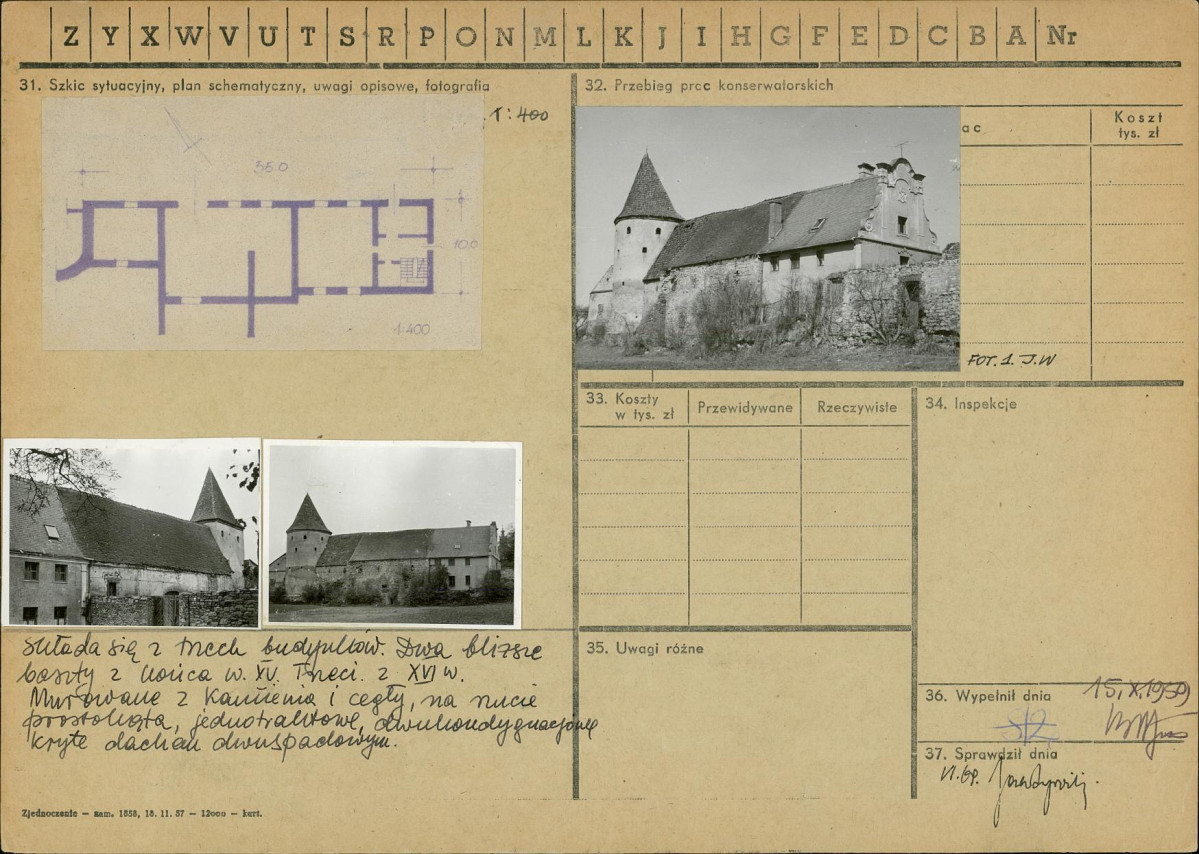 Z Y X W V U T S R P O N M L K J I H G F E D C B A Nr
31. Szkic sytuacyjny, plan schematyczny, uwagi opisowe, fotografia
1:400
35.0
10.0
1:400
Składa się z trzech budynków. Dwa bliższe
baszty z końca w. XV. Trzeci z XVI w.
Murowane z kamienia i cegły, na rzucie
prostokąta, jednotraktowe, dwukondygnacjowe
kryte dachem dwuspadowym.
Zjednoczenie – zam. 1858, 18. 11. 57 – 12000 – kart.
32. Przebieg prac konserwatorskich
ac
Koszt
tys. zł
FOT. 1. J.W
33. Koszty
w tys. zł
Przewidywane
Rzeczywiste
34. Inspekcje
35. Uwagi różne
36. Wypełnił dnia
15.X.1959
37. Sprawdził dnia